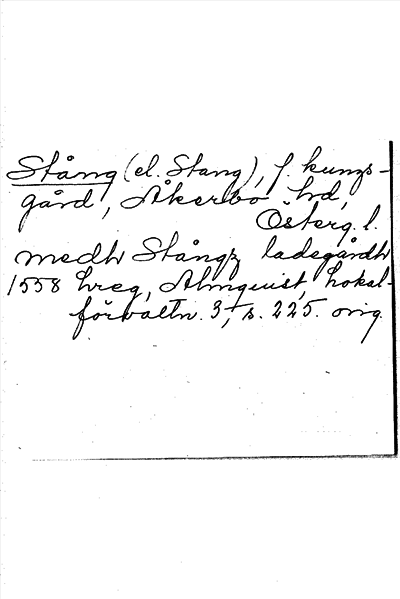 Stång (el. Stang), f. kungs-
gård, Åkerbo hd,
Österg. l.
medh Stångz ladegårdh
1558 hreg, Almquist, Lokal-
förvaltn. 3, s. 225. orig.